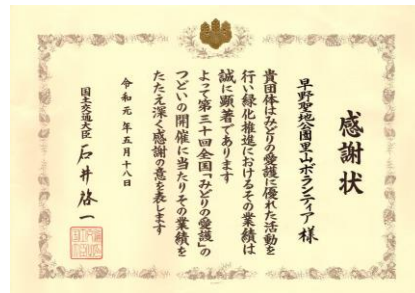 感謝状
早野聖地公園里山ボランティア様
貴団体はみどりの愛護に優れた活動を
行い緑化推進におけるその業績は
誠に顕著であります
よって第三十回全国「みどりの愛護」の
つどいの開催に当たりその業績を
たたえ深く感謝の意を表します
令和元年五月十八日
国土交通大臣 石井啓一